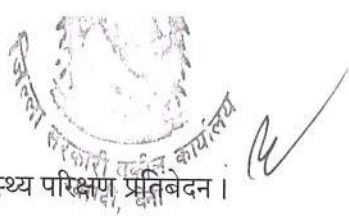 जिल्ला सरकारी वकील कार्यालय
स्थ्य परिक्षण प्रतिबेदन ।